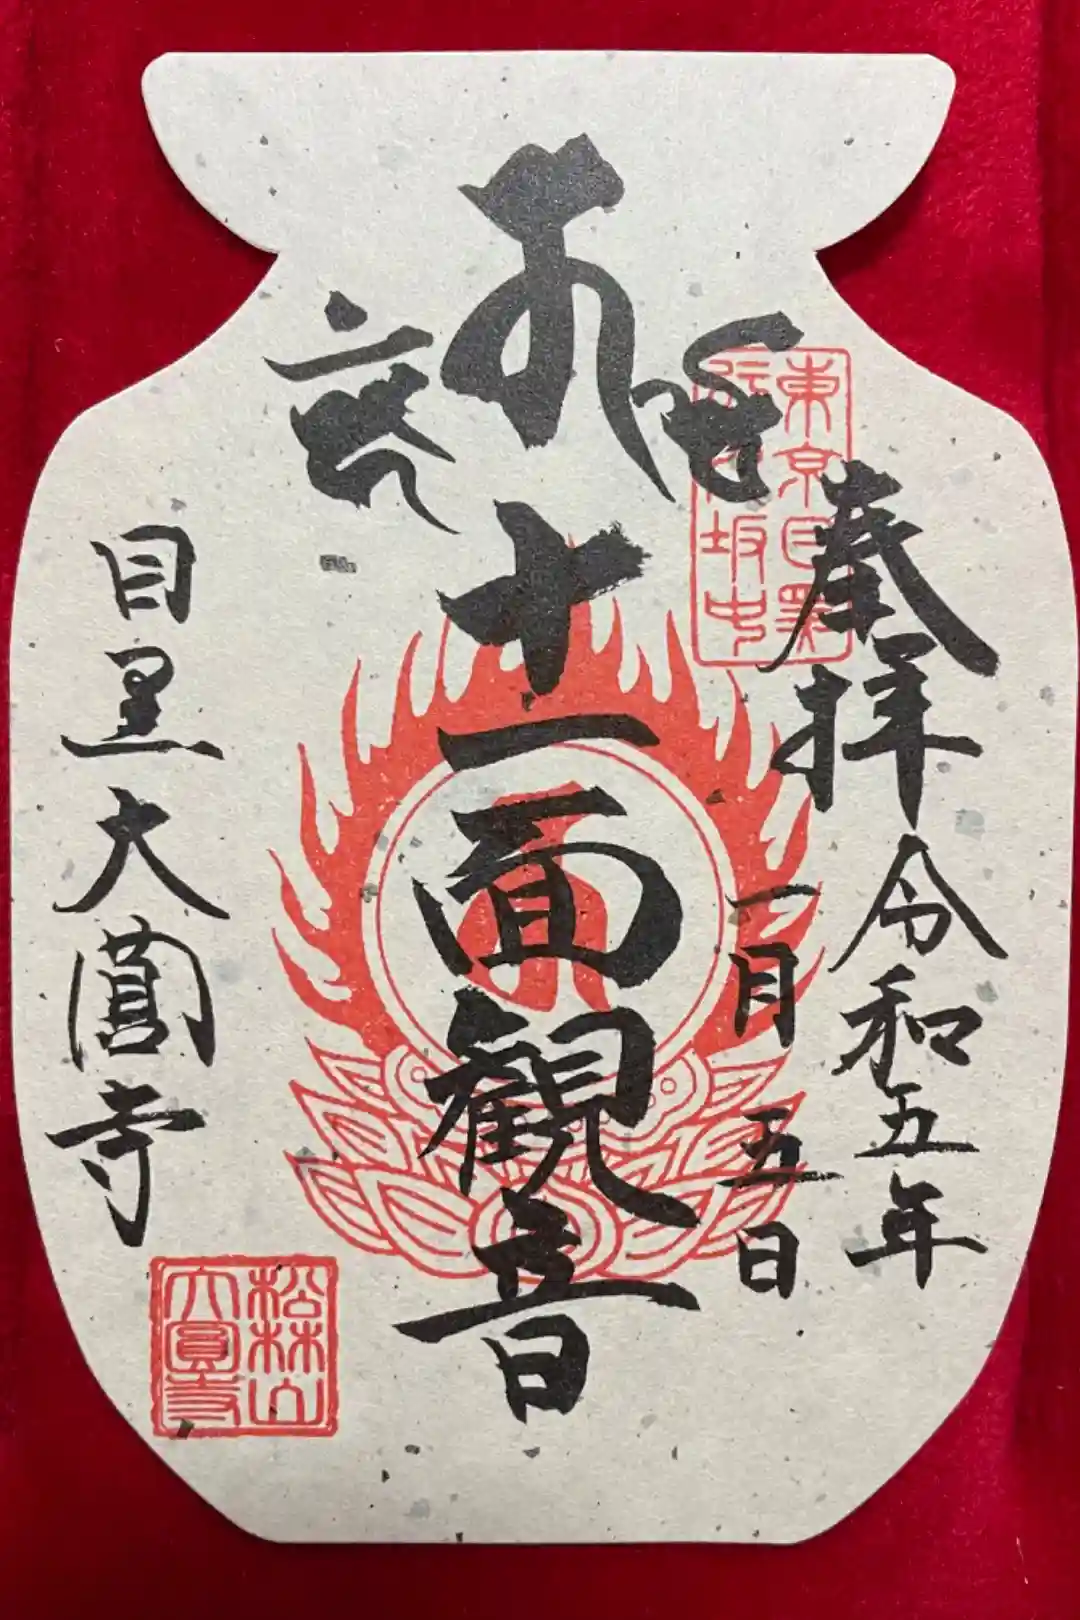 奉拝 令和五年
一月五日
東京目黒
行人坂中
十一面観音
目黒大圓寺
松林山
大圓寺